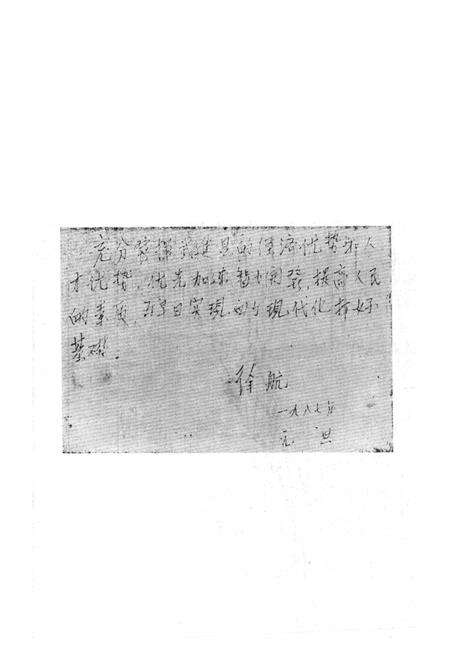 充分发挥武进县的经济优势和人
才优势，优先加速智力开发，提高人民
的素质，为早日实现四个现代化打好
基础。
徐航
一九八七年
元旦